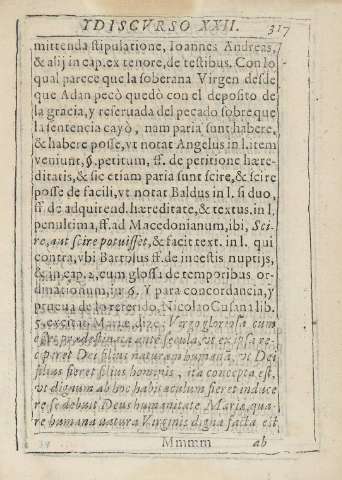 Y DISCVRSO XXII. 317
mittenda stipulatione, Ioannes Andreas,
& alij in cap. ex tenore, de testibus. Con lo
qual parece que la soberana Virgen desde
que Adan pecò quedò con el deposito de
la gracia, y reseruada del pecado sobre que
la sentencia cayò, nam paria sunt habere,
& habere posse, vt notat Angelus in l. item
veniunt, §. petitum, ff. de petitione hære
ditatis, & sic etiam paria sunt scire, & scire
posse de facili, vt notat Baldus in l. si duo,
ff. de adquirend. hæreditate, & textus. in l.
penultima, ff. ad Macedonianum, ibi, Sci-
re, aut scire potuisset, & facit text. in l. qui
contra, vbi Bartolus ff. de incestis nuptijs,
& in cap. 2. cum glossa de temporibus or-
dinationum, in 6. Y para concordancia, y
prueua de lo referido, Nicolao Cusano lib.
5. excitat. Maria, dize, Virgo gloriosa cum
esset prædestinata ante secula, vt ex ipsa re-
ciperet Dei filius naturam humana, vt Dei
filius fieret filius hominis, ita concepta est,
vt dignum ab hoc habitaculum fieret induce
re se debuit Deus humanitate Maria, qua-
re humana natura Virginis digna facta est
Mmmm ab